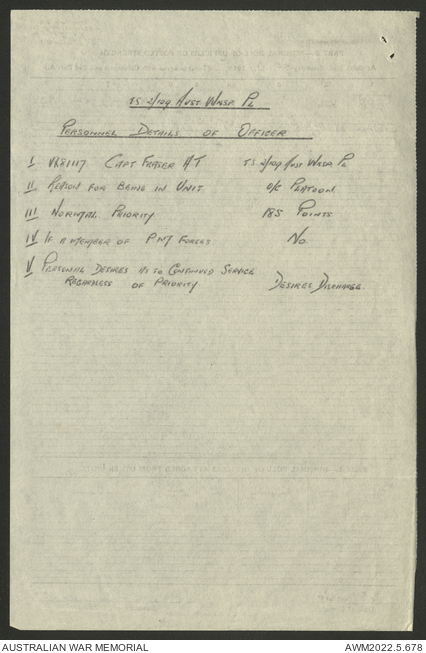 TS 2/129 AUST WKSP PL
PERSONNEL DETAILS OF OFFICER
I VX81117 CAPT FRASER AT TS 2/129 AUST WKSP PL
II REASON FOR BEING IN UNIT O/C PLATOON
III NORMAL PRIORITY 185 POINTS
IV IF A MEMBER OF P M FORCES NO
V PERSONAL DESIRES AS TO CONTINUED SERVICE
REGARDLESS OF PRIORITY DESIRES DISCHARGE.
AUSTRALIAN WAR MEMORIAL AWM2022.5.678